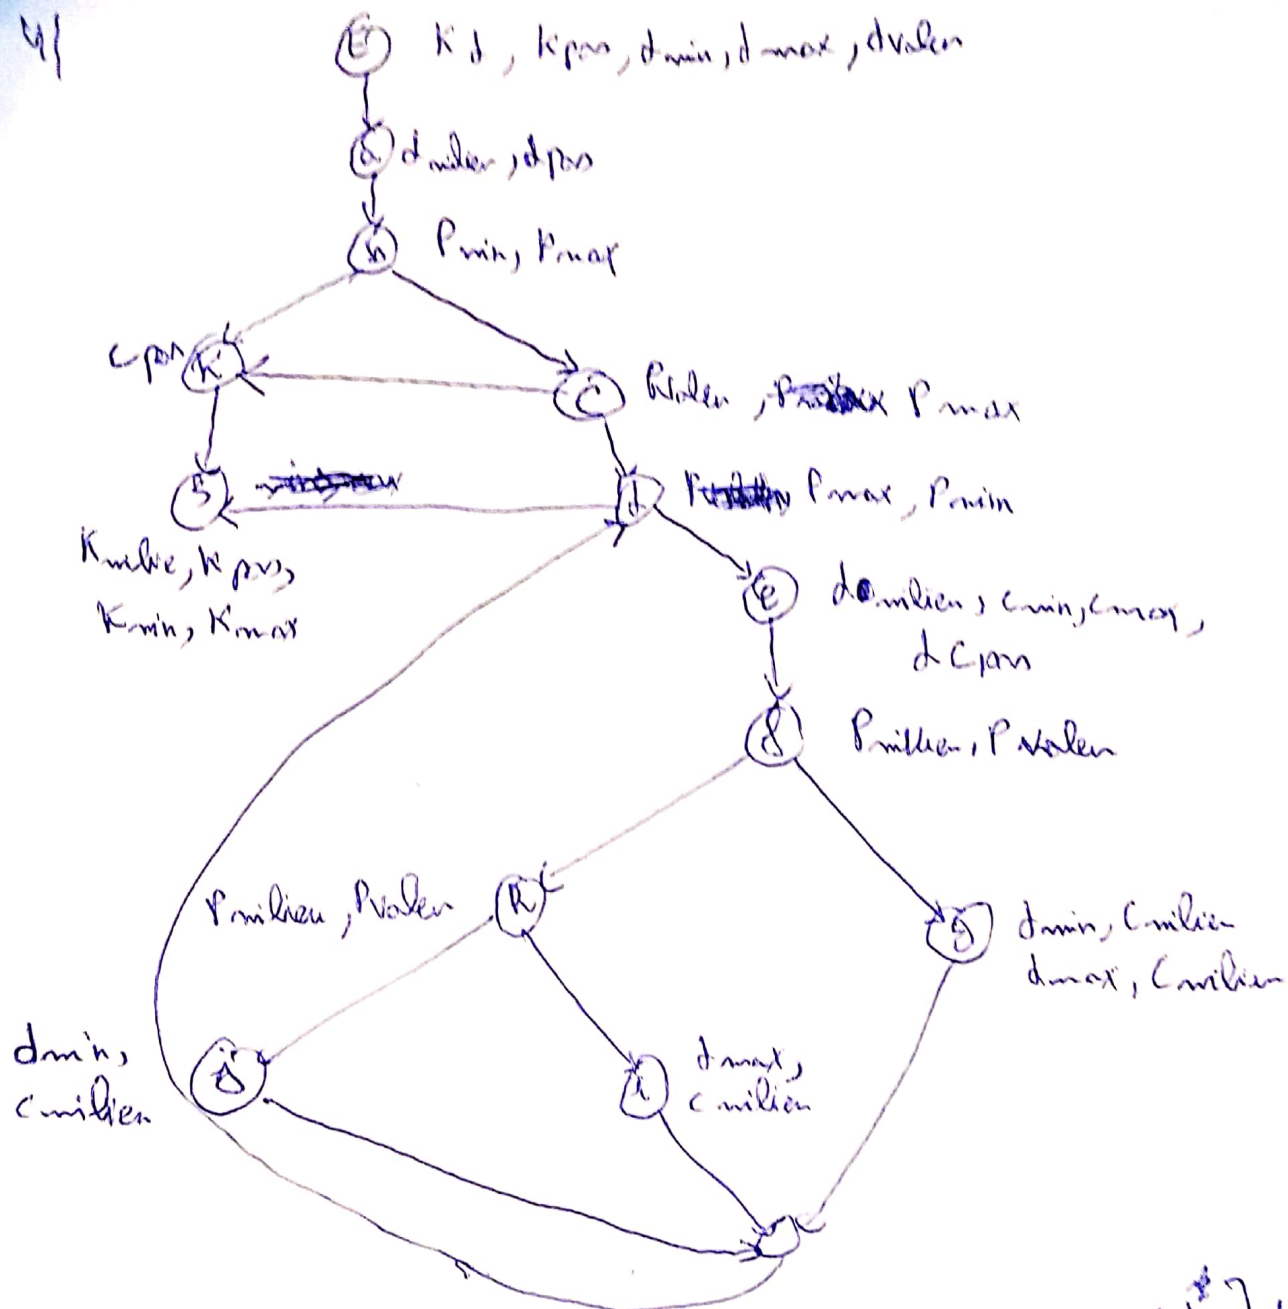 4/
E Kd, Kpos, dmin, dmax, dvaleur
a dmilieu, dpos
b Pmin, Pmax
cpos K
c Pvaleur, Pmax
5
d Pmax, Pmin
Kmilie, Kpos,
Kmin, Kmax
e dmilieu, cmin, cmax,
dcpos
f Pmilieu, Pvaleur
Pmilieu, Pvaleur h
g dmin, Cmilieu
dmax, Cmilieu
dmin,
cmilieu
j
i dmax,
cmilieu